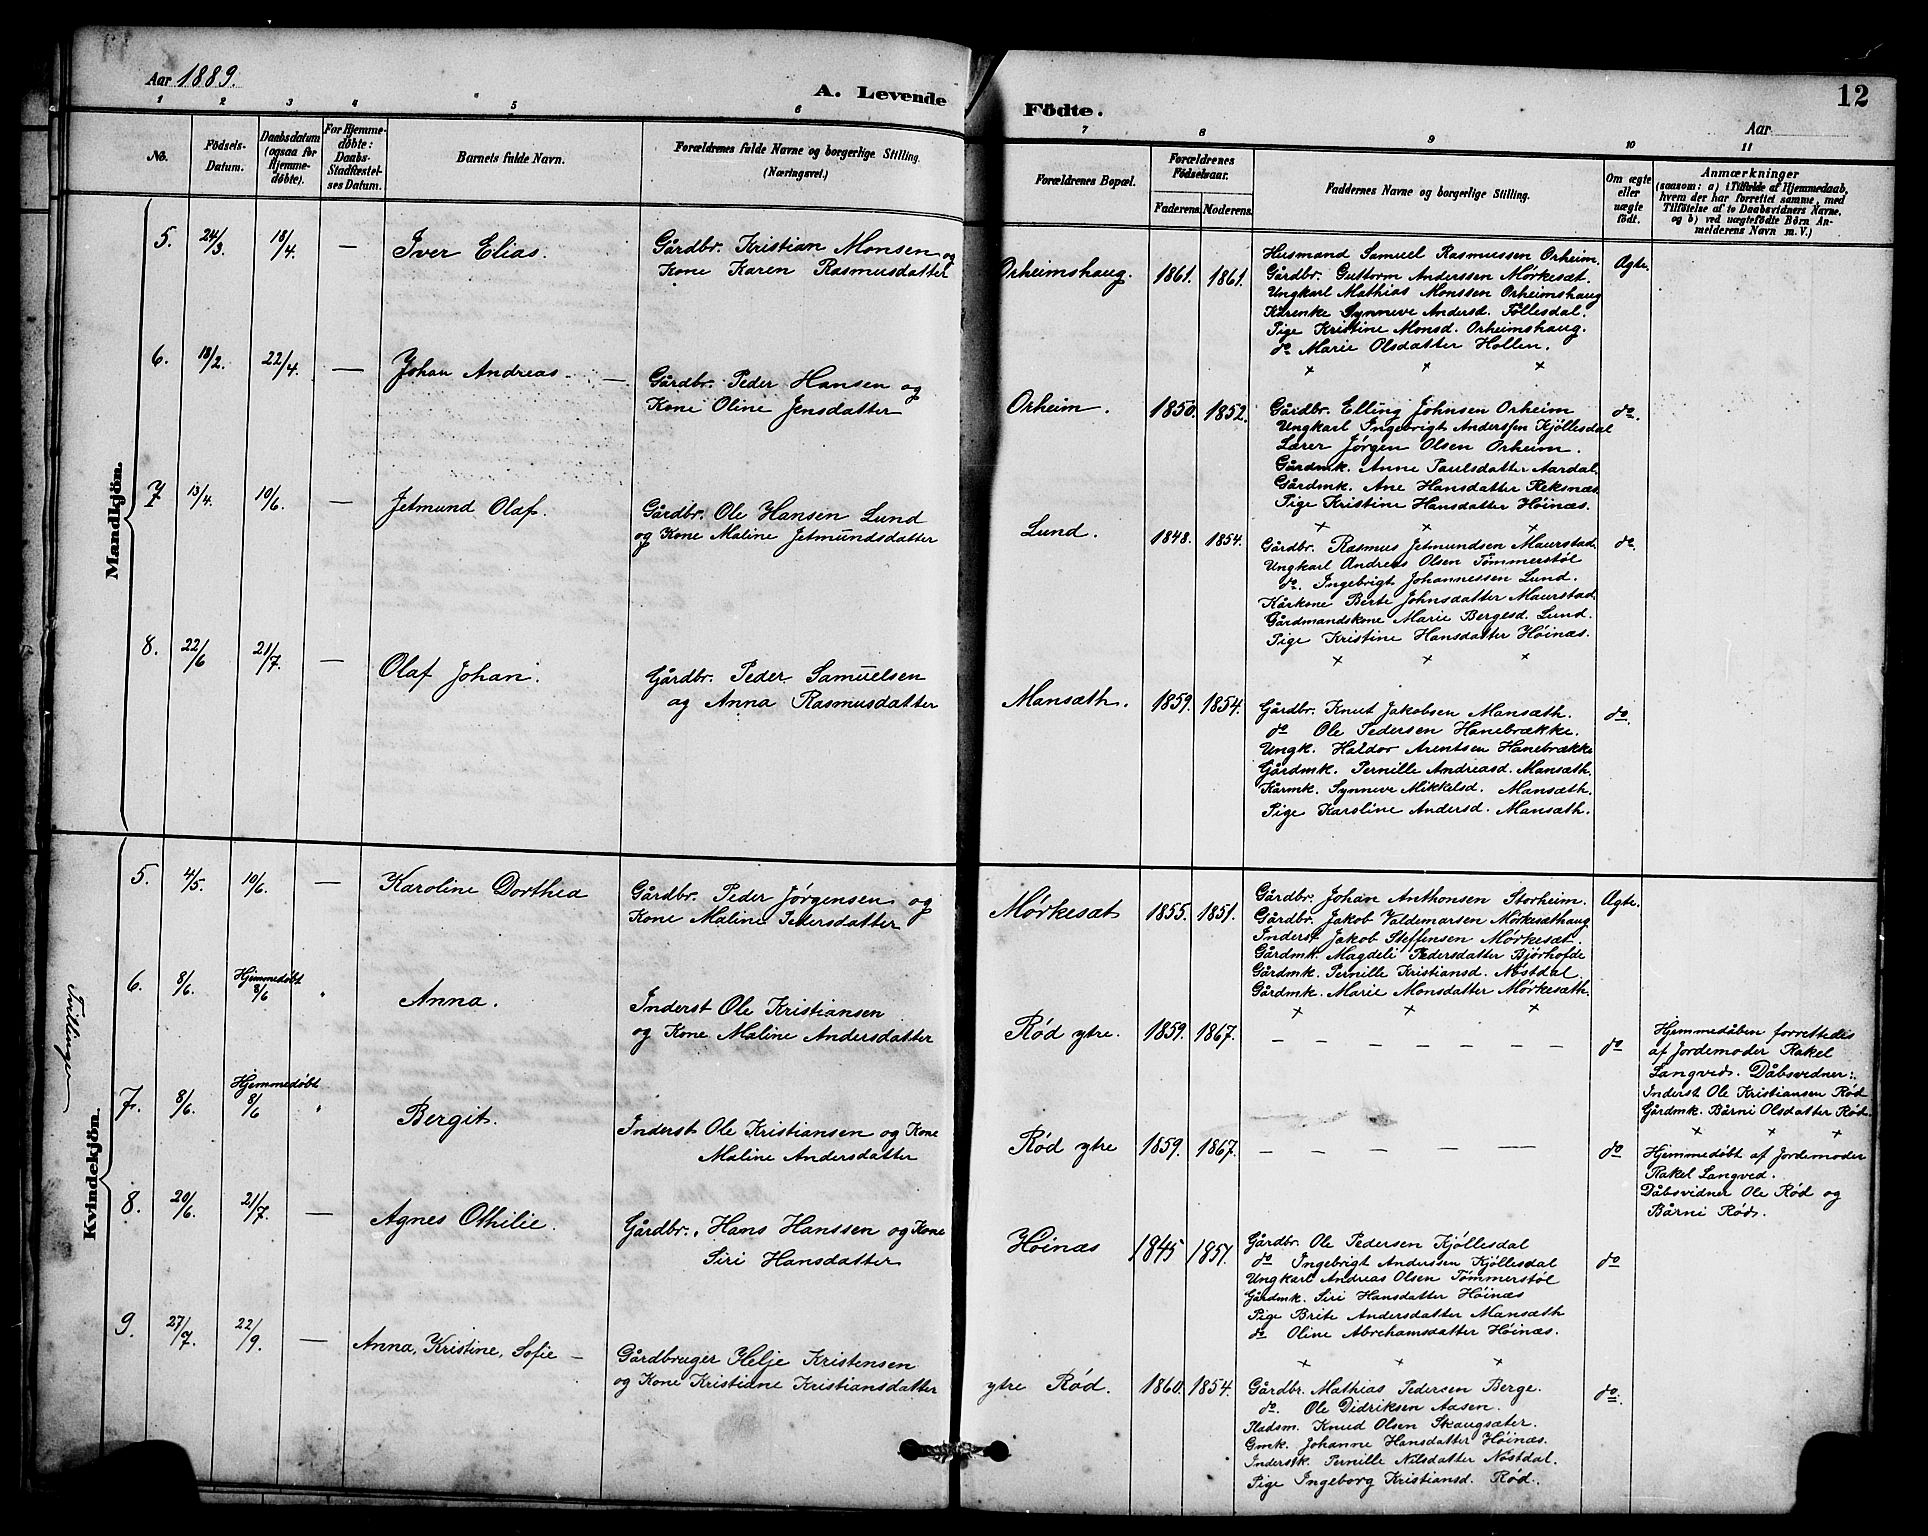 Aar 1889.
A. Levende Födte.
12
Aar
1 2 3 4 5 6 7 8 9 10 11
No.
Födsels-
Datum.
Daabsdatum
(ogsaa for
Hjemme-
döbte).
For Hjemme-
döbte:
Daabs-
Stadfæstel-
ses Datum.
Barnets fulde Navn.
Forældrenes fulde Navne og borgerlige Stilling.
(Næringsvei.)
Forældrenes Bopæl.
Forældrenes
Födselsaar.
Faderens. Moderens.
Faddernes Navne og borgerlige Stilling.
Om ægte
eller
uægte
födt.
Anmærkninger
(saasom: a) i Tilfælde af Hjemmedaab,
hvem der har forrettet samme, med
Tilföielse af to Daabsvidners Navne,
og b) ved uægtefödte Börn An-
melderens Navn m. V.)
Mandkjön.
5. 24/3 18/4 — Iver Elias. Gårdbr. Kristian Monsen og
Kone Karen Rasmusdatter
Orheimshaug. 1861. 1861.
Husmand Samuel Rasmussen Orheim.
Gårdbr. Guttorm Anderssen Mørkesæt.
Ungkarl Mathias Monssen Orheimshaug
Synneve Andersd. Föllesdal.
Pige Kristine Monsd. Orheimshaug.
do Marie Olsdatter Hollen.
Ægte.
x x x
6. 18/2. 22/4. — Johan Andreas. — Gårdbr. Peder Hansen og
Kone Oline Jensdatter
Orheim. 1850. 1852.
Gårdbr. Elling Johnsen Orheim
Ungkarl Ingebrigt Anderssen Kjöllesdal
Lærer Jørgen Olsen Orheim.
Gårdmk. Anne Paulsdatter Aardal.
Gårdmk. Ane Hansdatter Reksnæs.
Pige Kristine Hansdatter Höinæs.
do.
x x x
7 13/4. 10/6. — Jetmund Olaf. Gårdbr. Ole Hansen Lund
og Kone Maline Jetmundsdatter
Lund. 1848. 1854.
Gårdbr. Rasmus Jetmundsen Maurstad.
Ungkarl Andreas Olsen Tømmerstøl
do. Ingebrigt Johannessen Lund.
Kårkone Berte Johnsdatter Maurstad.
Gårdmandskone Marie Bergesd. Lund.
Pige Kristine Hansdatter Höinæs.
do.
x x x
8. 22/6 21/7. — Olaf Johan. Gårdbr. Peder Samuelsen
og Anna Rasmusdatter
Mansæth. 1859. 1854.
Gårdbr. Knut Jakobsen Mansæth.
do Ole Pedersen Hanebrække.
Ungk. Haldor Arentsen Hanebrække
Gårdmk. Pernille Andreasd. Mansæth.
Kårmk. Synneve Mikkelsd. Mansæth.
Pige Karoline Andersd. Mansæth.
do.
Kvindekjön.
Tvillinger
5. 4/5. 10/6. — Karoline Dorthea Gårdbr. Peder Jørgensen og
Kone Maline Pedersdatter
Mørkesæt 1855. 1851.
Gårdbr. Johan Anthonsen Storheim.
Gårdbr. Jakob Valdemarsen Mörkesæthaug
Inderst Jakob Steffensen Mörkesæt.
Gårdmk. Magdeli Pedersdatter Björhofde
Gårdmk. Pernille Kristiansd. Nöstdal.
Gårdmk. Marie Monsdatter Mørkesæth.
Ægte.
x x x
6. 8/6. Hjemmedöbt
8/6 " Anna. Inderst Ole Kristiansen
og Kone Maline Andersdatter
Rød ytre. 1859. 1867. — — — — — — — do
Hjemmedåben forrettedes
af Jordemoder Rakel
Langved. Dåbsvidner:
Inderst Ole Kristiansen Rød
Gårdmk. Bårni Olsdatter Rød.
x x x
7. 8/6. Hjemmedöbt
8/6 " Bergit. Inderst Ole Kristiansen og Kone
Maline Andersdatter
Rød ytre 1859. 1867. — — — — — — do
Hjemmedöbt af Jordemoder
Rakel Langved.
Dåbsvidner Ole Rød og
Bårni Rød.
8. 20/6. 21/7. — Agnes Othilie. Gårdbr. Hans Hanssen og Kone
Siri Hansdatter
Höinæs 1845 1851.
Gårdbr. Ole Pedersen Kjöllesdal
do Ingebrigt Anderssen Kjöllesdal
Ungkarl Andreas Olsen Tömmerstöl
Gårdmk. Siri Hansdatter Höinæs
Pige Brite Andersdatter Mansæth
do. Oline Abrehamsdatter Höinæs.
do
x x x
9. 27/7. 22/9. — Anna, Kristine, Sofie — Gårdbruger Helje Kristensen
og Kone Kristiane Kristiansdatter
ytre Rød. 1860. 1854.
Gårdbr. Mathias Pedersen Berge.
do. Ole Didriksen Aasen.
Pladsm. Knud Olsen Skaugsæter.
Gmk. Johanne Hansdatter Höinæs.
Inderstk. Pernille Nilsdatter Nöstdal.
Pige Ingeborg Kristiansd. Rød.
do.